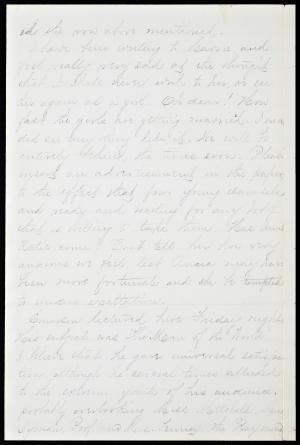 at the row above mentioned.
I have been writing to Bessie and
feel really very sad at the thought
that I shall never write to her, or see
her again as a girl. Oh dear! How
fast the girls are getting married, I never
did see any thing like it. We will be
entirely behind the times soon. Please
insert an advertisement in the paper
to the effect that four young damsels
are ready and waiting for any body
that is willing to take them. Has Aunt
Katie come? Don't tell her how very
anxious we felt, lest Anna may have
been more fortunate and she be tempted
to undue exultation.
Emerson lectured here Friday night
His subject was The Man of the World.
I believe that he gave universal satisfac-
tion, although he several times alluded
to the extreme youth of his audience,
probably overlooking Miss
Prof. and Mrs. the